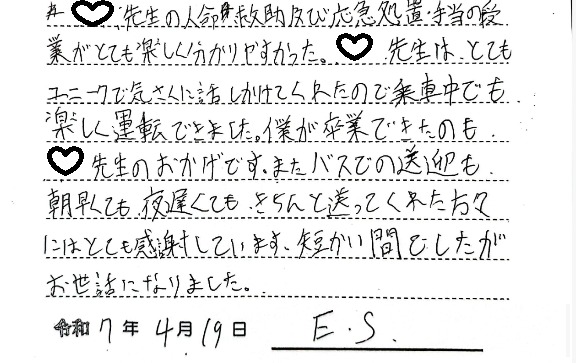 た ♡先生の人命救助及び応急処置・手当の授
業がとても楽しく分かりやすかった。♡先生は、とても
ユニークで気さくに話しかけてくれたので乗車中でも
楽しく運転できました。僕が卒業できたのも、
♡先生のおかげです。またバスでの送迎も
朝早くても、夜遅くても、きちんと送ってくれた方々
にはとても感謝しています。短かい間でしたが
お世話になりました。
令和7年4月19日 E.S.